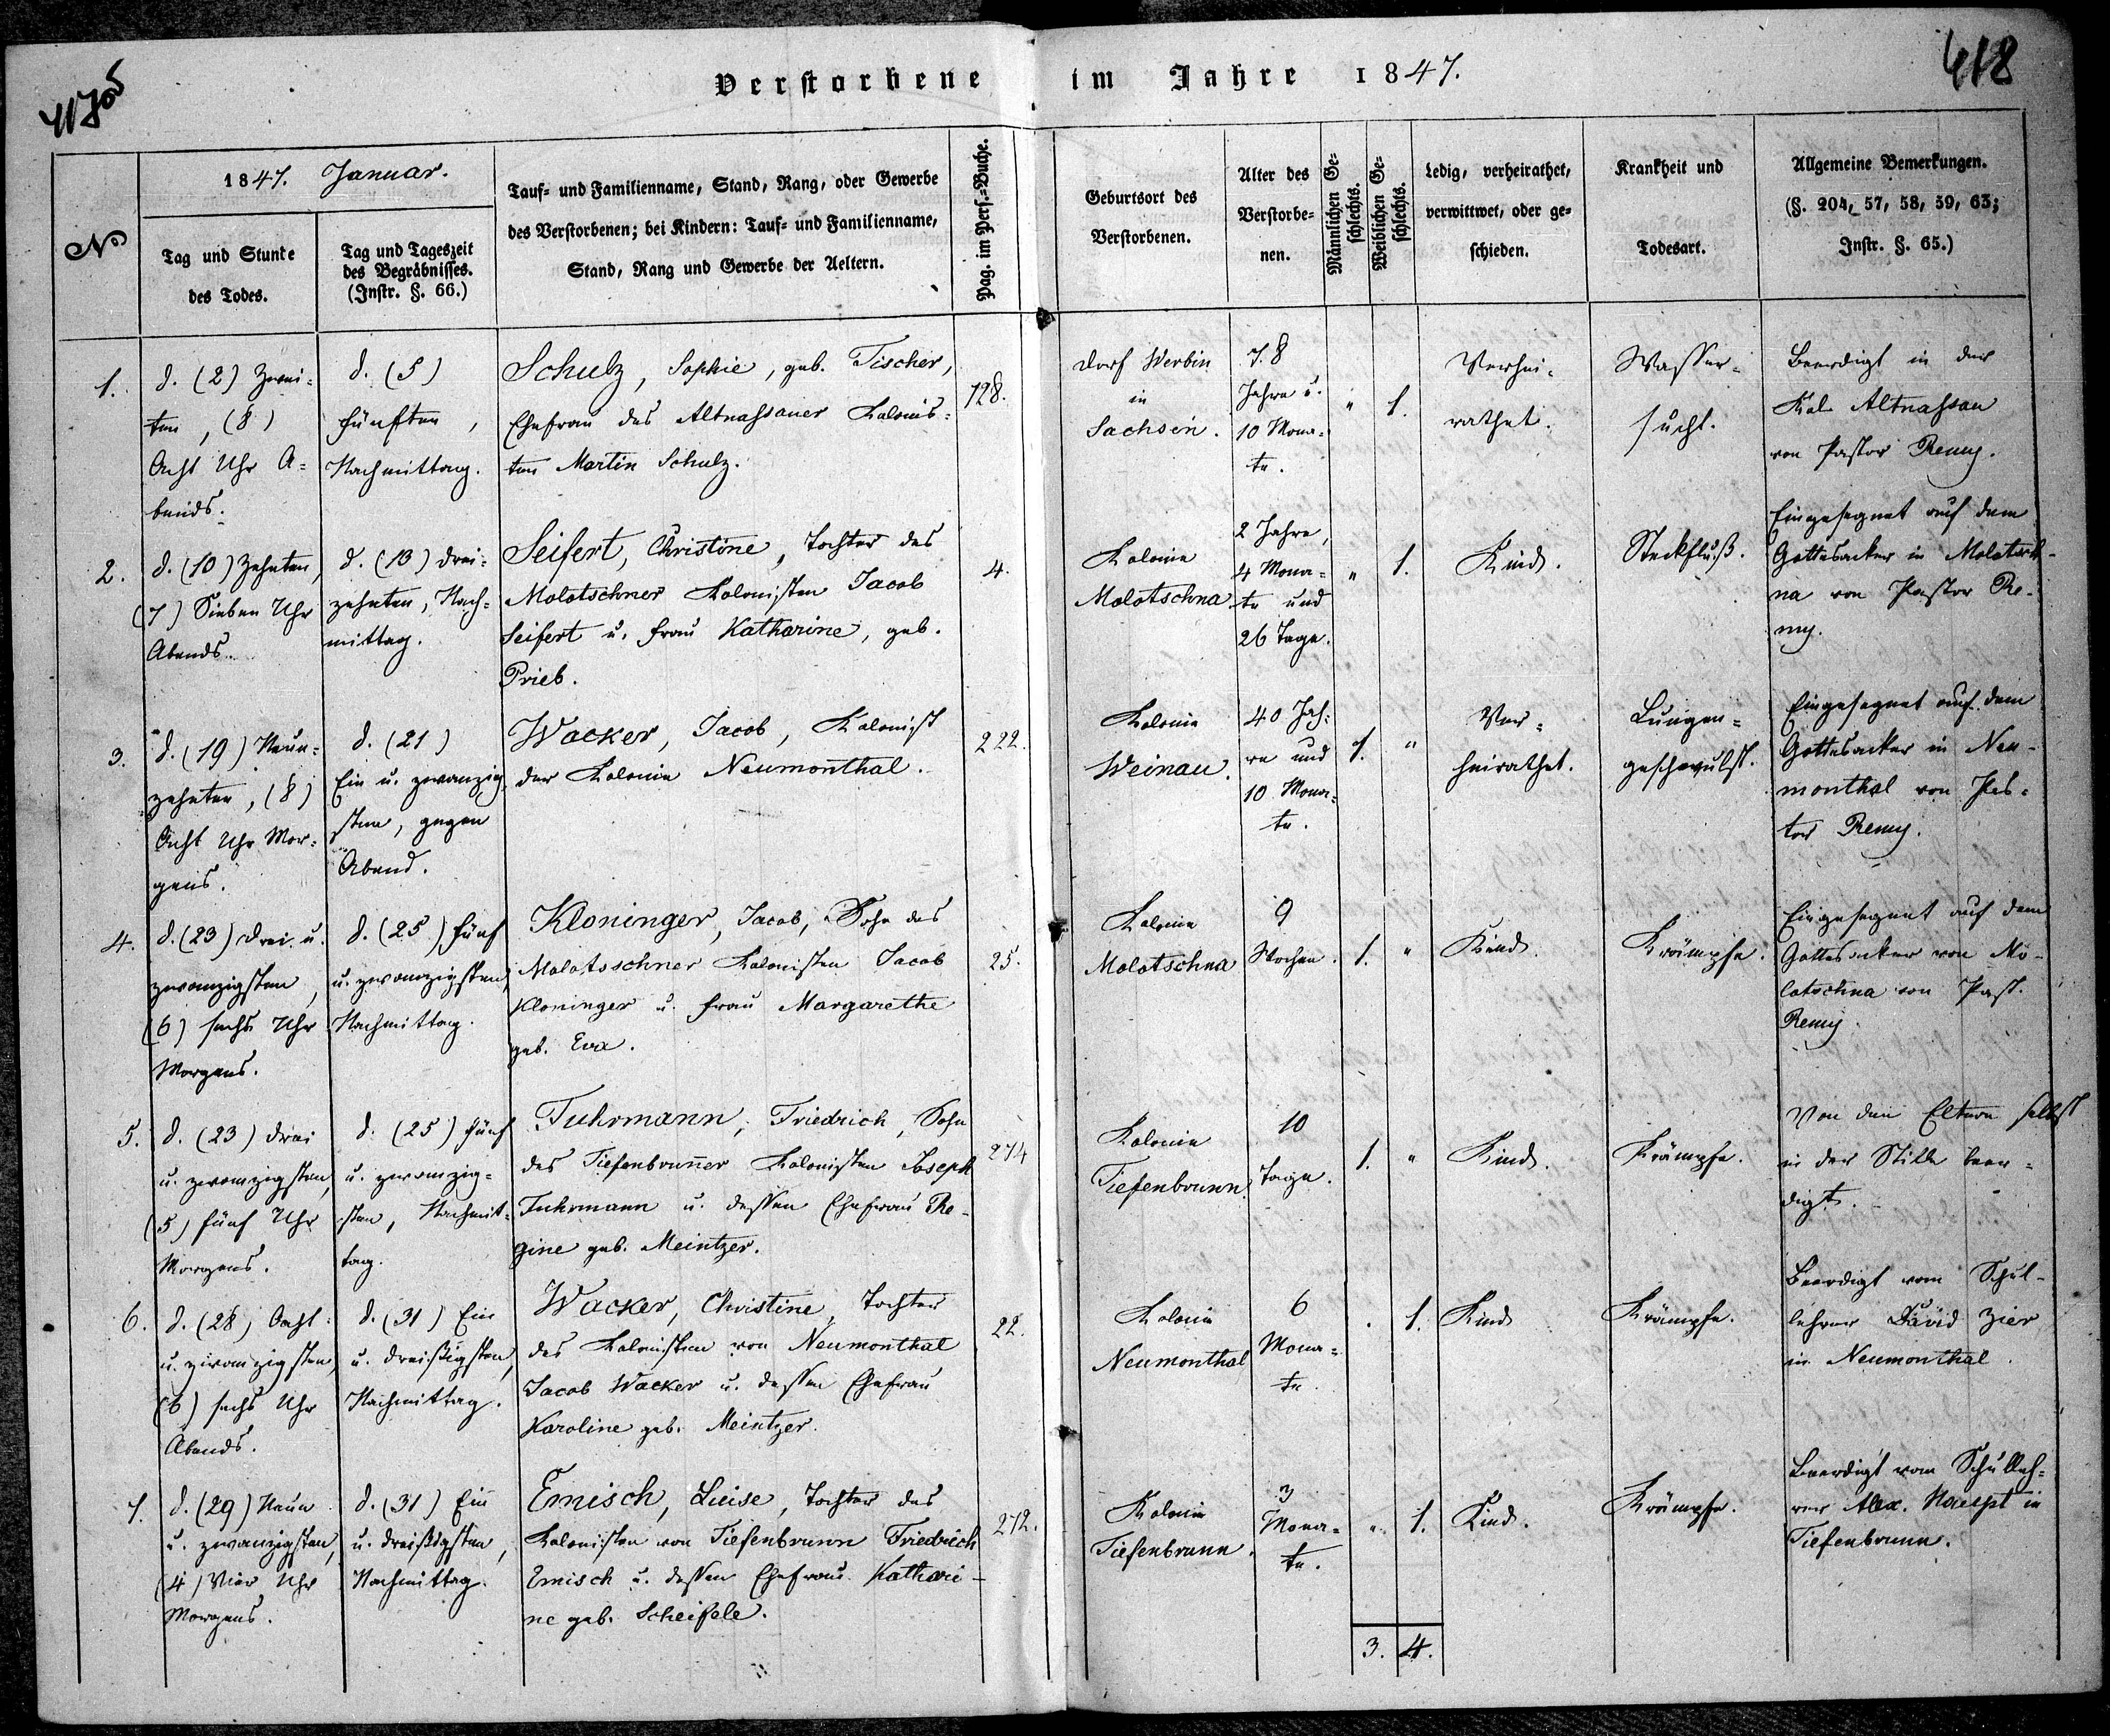 Verstorbene im Jahre 1847.
418
1847. Januar.
No
Tag und Stunde
des Todes.
Tag und Tageszeit
des Begräbnisses.
(Instr. §. 66.)
Tauf- und Familienname, Stand, Rang, oder Gewerbe
des Verstorbenen; bei Kindern: Tauf- und Familienname,
Stand, Rang und Gewerbe der Aeltern.
Pag. im Pers.-Buche.
Geburtsort des
Verstorbenen.
Alter des
Verstorbe-
nen.
Männlichen Ge-
schlechts.
Weiblichen Ge-
schlechts.
Ledig, verheirathet,
verwittwet, oder ge-
schieden.
Krankheit und
Todesart.
Allgemeine Bemerkungen.
(§. 204, 57, 58, 59, 63;
Instr. §. 65.)
1.
d. (2) Zwei-
ten, (8)
Acht Uhr A-
bends.
d. (5)
fünften,
Nachmittag.
Schulz, Sophie, geb. Fischer,
Ehefrau des Altnassauer Kolonis-
ten Martin Schulz.
128.
Dorf Werbin
in
Sachsen.
78
Jahre u.
10 Mona-
te.
"
1.
Verhei-
rathet.
Wasser-
sucht.
Beerdigt in der
Kol. Altnassau
von Pastor Remy.
2.
d. (10) Zehnten,
(7) Sieben Uhr
Abends.
d. (13) drei-
zehnten, Nach-
mittag.
Seifert, Christine, Tochter des
Molotschner Kolonisten Jacob
Seifert u. Frau Katharine, geb.
Prieb.
4.
Kolonie
Molotschna.
2 Jahre,
4 Mona-
te und
26 Tage.
"
1.
Kind.
Steckfluß.
Eingesegnet auf dem
Gottesacker in Molotsch-
na von Pastor Re-
my.
3.
d. (19) Neun-
zehnten, (8)
Acht Uhr Mor-
gens.
d. (21)
Ein u. zwanzig-
sten, gegen
Abend.
Wacker, Jacob, Kolonist
der Kolonie Neumonthal.
222.
Kolonie
Weinau.
40 Jah-
re und
10 Mona-
te.
1.
"
Ver-
heirathet.
Lungen-
geschwulst.
Eingesegnet auf dem
Gottesacker in Neu-
monthal von Pas-
tor Remy.
4.
d. (23) drei u.
zwanzigsten,
(6) sechs Uhr
Morgens.
d. (25) fünf
u. zwanzigsten,
Nachmittag.
Kloninger, Jacob, Sohn des
Molotsschner Kolonisten Jacob
Kloninger u. Frau Margarethe
geb. Eva.
25.
Kolonie
Molotschna
9
Wochen.
1.
"
Kind.
Krämpfe.
Eingesegnet auf dem
Gottesacker von Mo-
lotschna von Past.
Remy.
5.
d. (23) drei
u. zwanzigsten,
(5) fünf Uhr
Morgens.
d. (25) fünf
u. zwanzig-
sten, Nachmit-
tag.
Fuhrmann, Friedrich, Sohn
des Tiefenbrunner Kolonisten Joseph
Fuhrmann u. dessen Ehefrau Re-
gine geb. Meintzer.
274
Kolonie
Tiefenbrunn.
10
Tage.
1.
"
Kind.
Krämpfe.
Von den Eltern selbst
in der Stille beer-
digt.
6.
d. (28) Acht
u. zwanzigsten,
(6) sechs Uhr
Abends.
d. (31) Ein
u. dreißigsten,
Nachmittag.
Wacker, Christine, Tochter
des Kolonisten von Neumonthal
Jacob Wacker u. dessen Ehefrau
Karoline geb. Meintzer.
22.
Kolonie
Neumonthal
6
Mona-
te.
1.
Kind
Krämpfe.
Beerdigt vom Schul-
lehrer David Zier
in Neumonthal.
7.
d. (29) Neun
u. zwanzigsten,
(4) Vier Uhr
Morgens.
d. (31) Ein
u. dreißigsten,
Nachmittag.
Emisch, Luise, Tochter des
Kolonisten von Tiefenbrunn Friedrich
Emisch u. dessen Ehefrau Kathari-
ne geb. Scheifele.
272.
Kolonie
Tiefenbrunn.
3
Mona-
te.
"
1.
Kind.
Krämpfe.
Beerdigt vom Schulleh-
rer Alex. in
Tiefenbrunn.
3. 4.